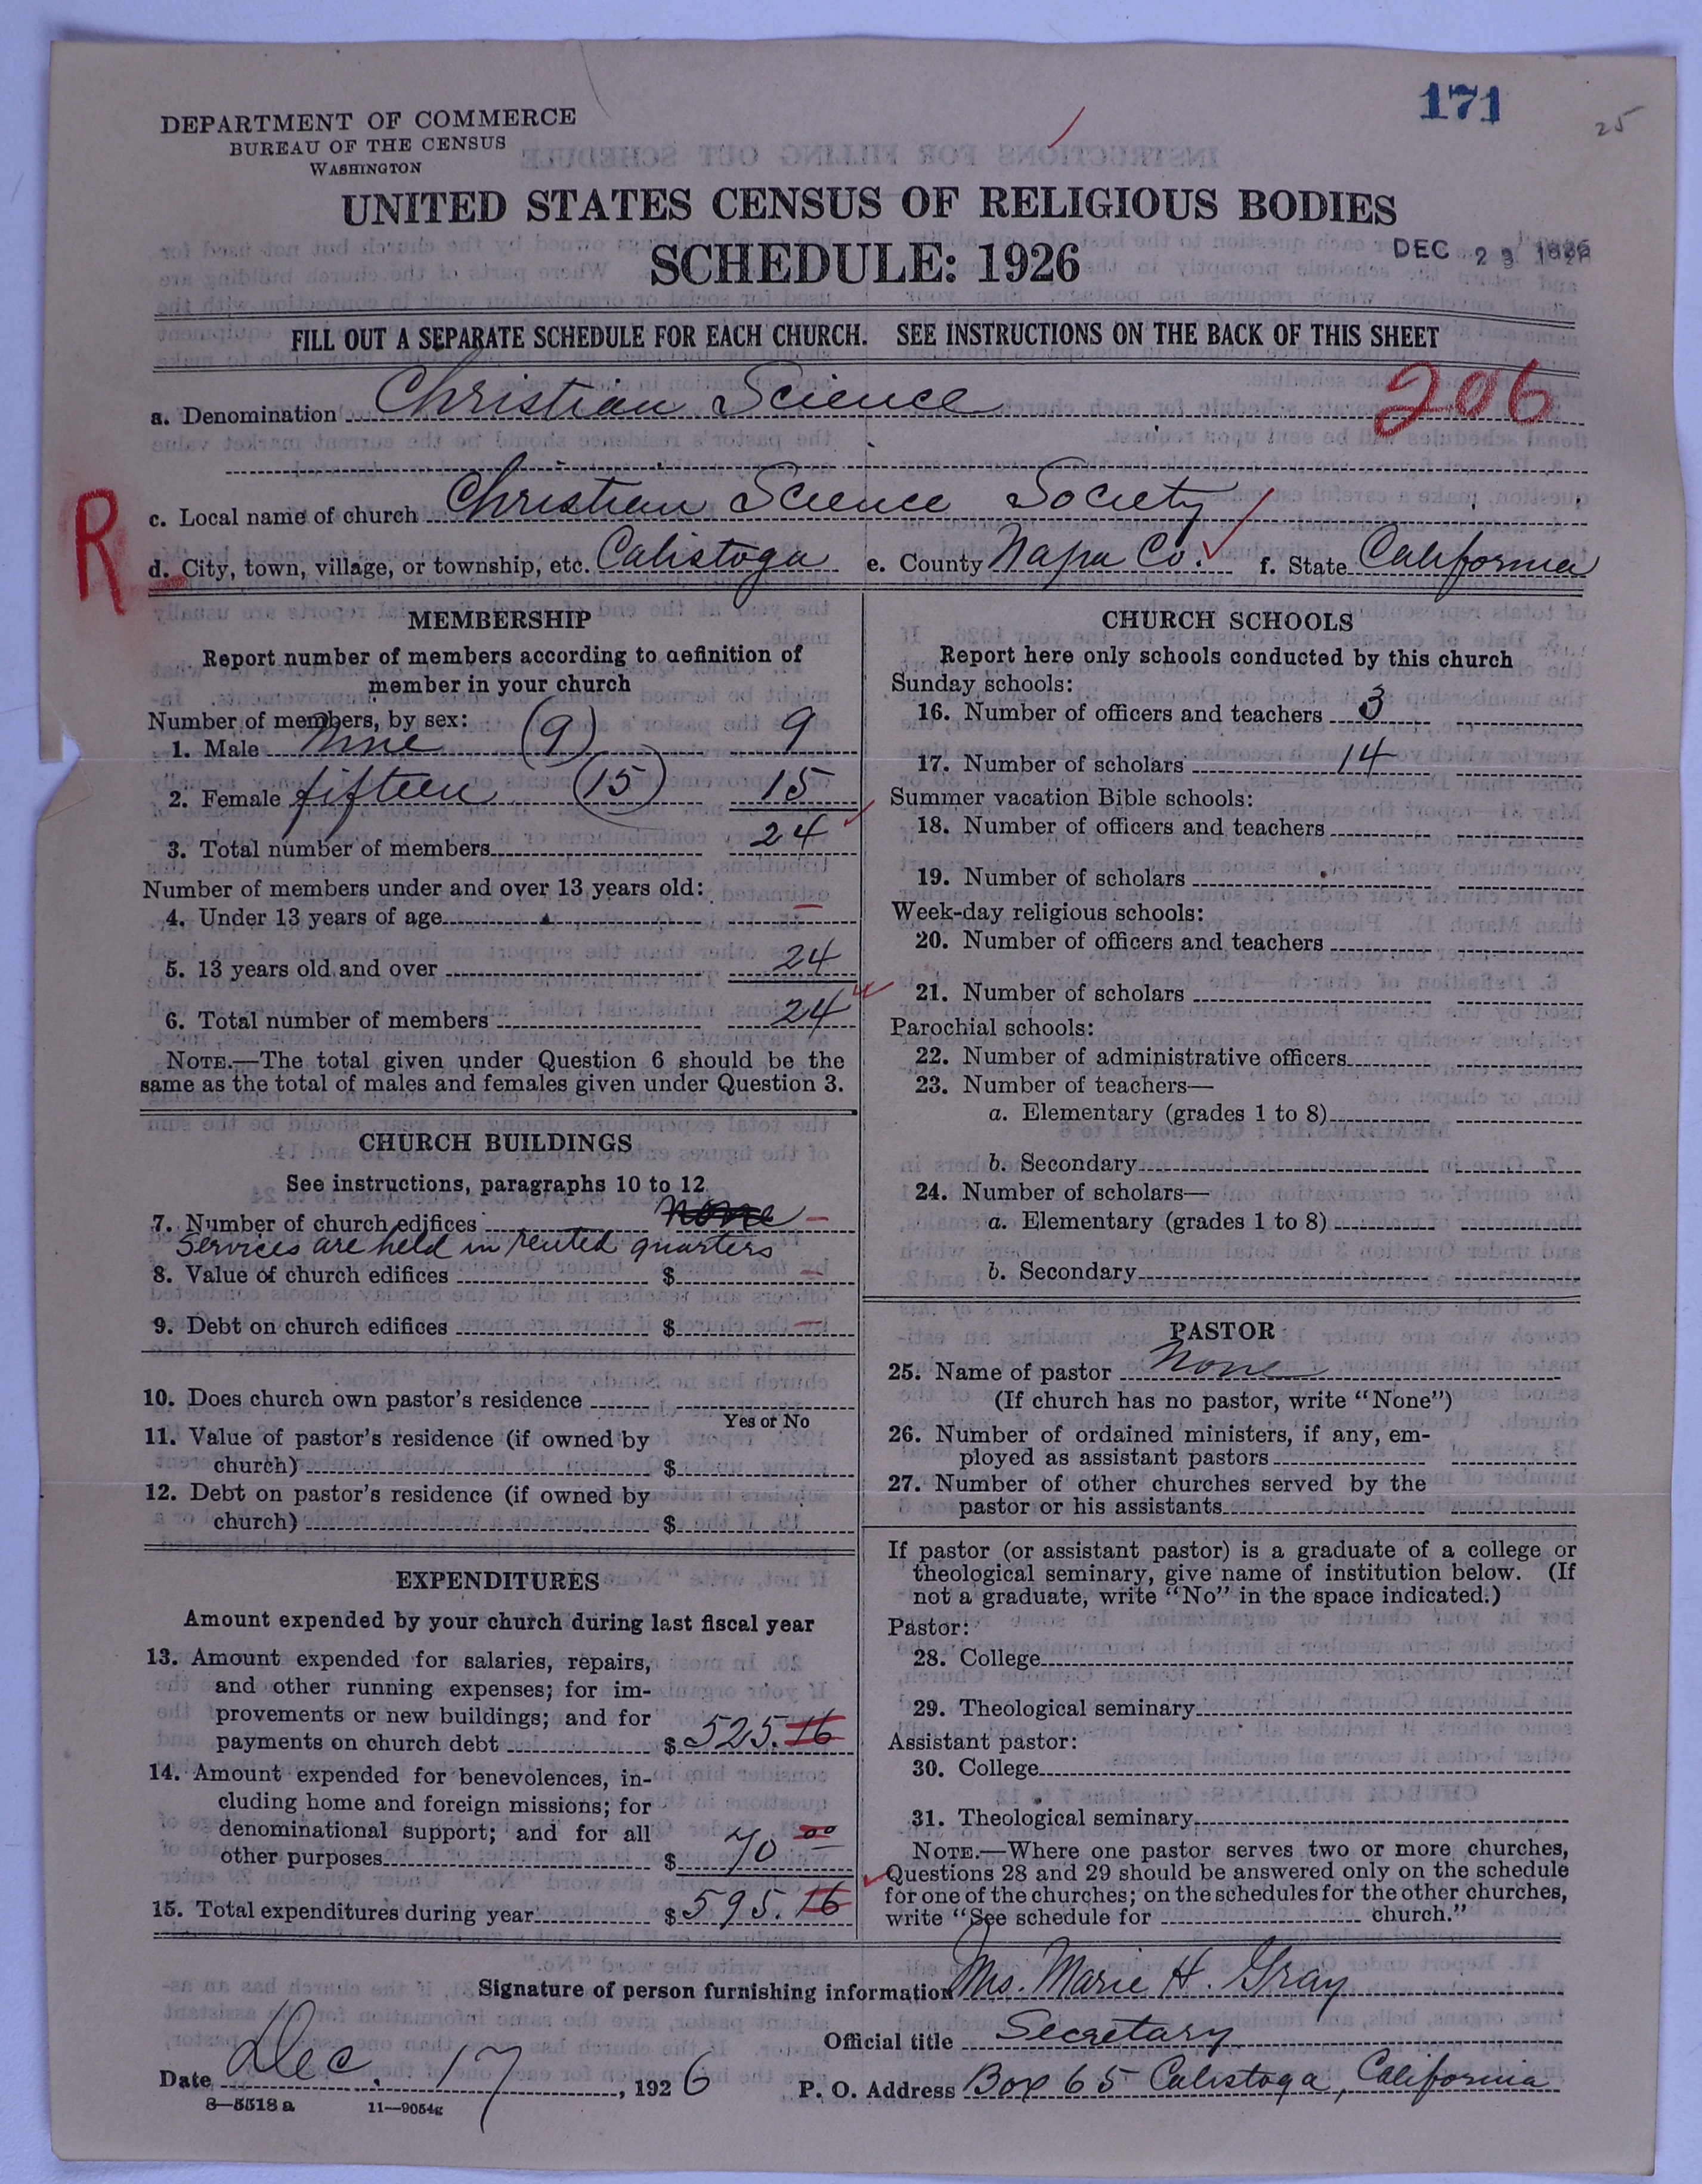 171
25
DEPARTMENT OF COMMERCE
BUREAU OF THE CENSUS
WASHINGTON
UNITED STATES CENSUS OF RELIGIOUS BODIES
SCHEDULE: 1926
DEC 23 1926
FILL OUT A SEPARATE SCHEDULE FOR EACH CHURCH. SEE INSTRUCTIONS ON THE BACK OF THIS SHEET
a. Denomination Christian Science
206
R
c. Local name of church Christian Science Society
d. City, town, village, or township, etc. Calistoga e. County Napa Co. f. State California
MEMBERSHIP
Report number of members according to definition of
member in your church
Number of members, by sex:
1. Male Nine (9) 9
2. Female fifteen (15) 15
3. Total number of members 24
Number of members under and over 13 years old:
4. Under 13 years of age –
5. 13 years old and over 24
6. Total number of members 24
NOTE.—The total given under Question 6 should be the
same as the total of males and females given under Question 3.
CHURCH BUILDINGS
See instructions, paragraphs 10 to 12
7. Number of church edifices None –
Services are held in rented quarters
8. Value of church edifices $ –
9. Debt on church edifices $ –
10. Does church own pastor's residence
Yes or No
11. Value of pastor's residence (if owned by
church) $
12. Debt on pastor's residence (if owned by
church) $
EXPENDITURES
Amount expended by your church during last fiscal year
13. Amount expended for salaries, repairs,
and other running expenses; for im-
provements or new buildings; and for
payments on church debt $ 525.16
14. Amount expended for benevolences, in-
cluding home and foreign missions; for
denominational support; and for all
other purposes $ 70 00
15. Total expenditures during year $ 595.16
CHURCH SCHOOLS
Report here only schools conducted by this church
Sunday schools:
16. Number of officers and teachers 3
17. Number of scholars 14
Summer vacation Bible schools:
18. Number of officers and teachers
19. Number of scholars
Week-day religious schools:
20. Number of officers and teachers
21. Number of scholars
Parochial schools:
22. Number of administrative officers
23. Number of teachers—
a. Elementary (grades 1 to 8)
b. Secondary
24. Number of scholars—
a. Elementary (grades 1 to 8)
b. Secondary
PASTOR
25. Name of pastor None
(If church has no pastor, write "None")
26. Number of ordained ministers, if any, em-
ployed as assistant pastors
27. Number of other churches served by the
pastor or his assistants
If pastor (or assistant pastor) is a graduate of a college or
theological seminary, give name of institution below. (If
not a graduate, write "No" in the space indicated.)
Pastor:
28. College
29. Theological seminary
Assistant pastor:
30. College
31. Theological seminary
NOTE.—Where one pastor serves two or more churches,
Questions 28 and 29 should be answered only on the schedule
for one of the churches; on the schedules for the other churches,
write "See schedule for church."
Signature of person furnishing information Mrs. Marie H. Gray
Official title Secretary
Date Dec. 17, 1926 P. O. Address Box 65 Calistoga, California
8—5518 a 11—9054g